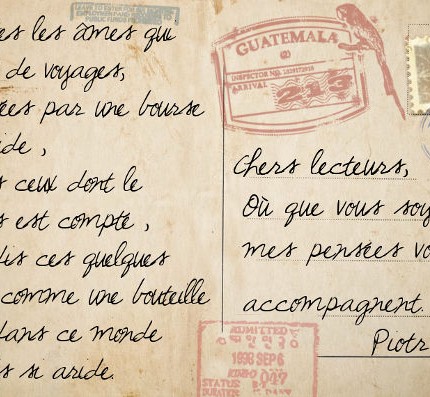 les âmes qui
de voyages,
par une bourse
ceux dont le
est compté,
ces quelques
comme une bouteille
dans ce monde
si aride.
GUATEMALA
INSPECTOR NO.
ARRIVAL
213
Chers lecteurs,
Où que vous
mes pensées
accompagnent.
Piotr
ADMITTED
1998 SEP 6
STATUS